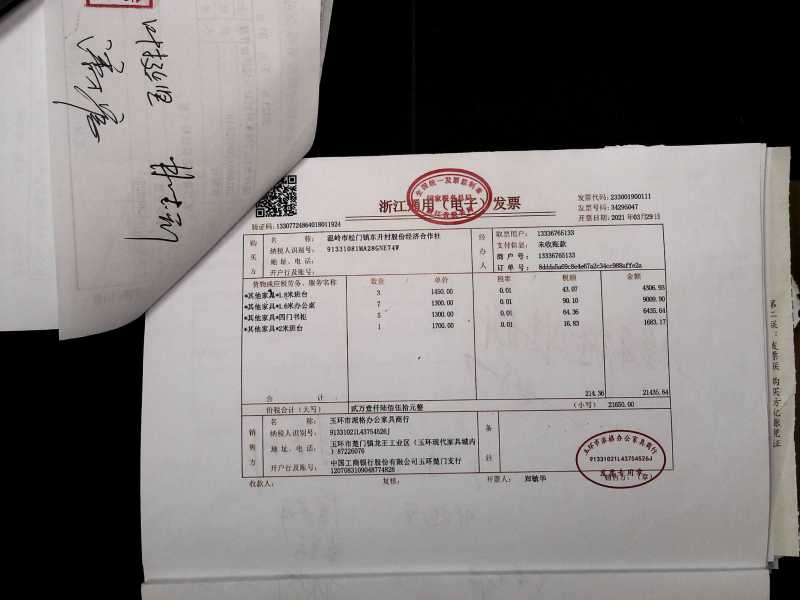 浙江通用（电子）发票
全国统一发票监制章
国家税务总局
浙江省税务局
验证码：13307724864018011924
发票代码：233001900111
发票号码：34296047
开票日期：2021年03月29日
购买方
名 称：温岭市松门镇东升村股份经济合作社
纳税人识别号：91331081MA28GNE74W
地 址、电 话：
开户行及账号：
经办人
取票用户：13336765133
支付信息：未收账款
商 户 号：13336765133
订 单 号：
货物或应税劳务、服务名称 数量 / 单价 税率 税额 金额
*其他家具*1.8米班台 3 1450.00 0.01 43.07 4306.93
*其他家具*1.6米办公桌 7 1300.00 0.01 90.10 9009.90
*其他家具*四门书柜 5 1300.00 0.01 64.36 6435.64
*其他家具*2米班台 1 1700.00 0.01 16.83 1683.17
合 计 214.36 21435.64
价税合计（大写） 贰万壹仟陆佰伍拾元整 （小写）21650.00
销售方
名 称：玉环市派格办公家具商行
纳税人识别号：91331021L43754526J
地 址、电 话：玉环市楚门镇龙王工业区（玉环现代家具城内）87226076
开户行及账号：中国工商银行股份有限公司玉环楚门支行1207083109048774826
备注
玉环市派格办公家具商行
91331021L43754526J
发票专用章
收款人： 复核： 开票人：郑敏华 销售方：（章）
第二联：发票联 购买方记账凭证